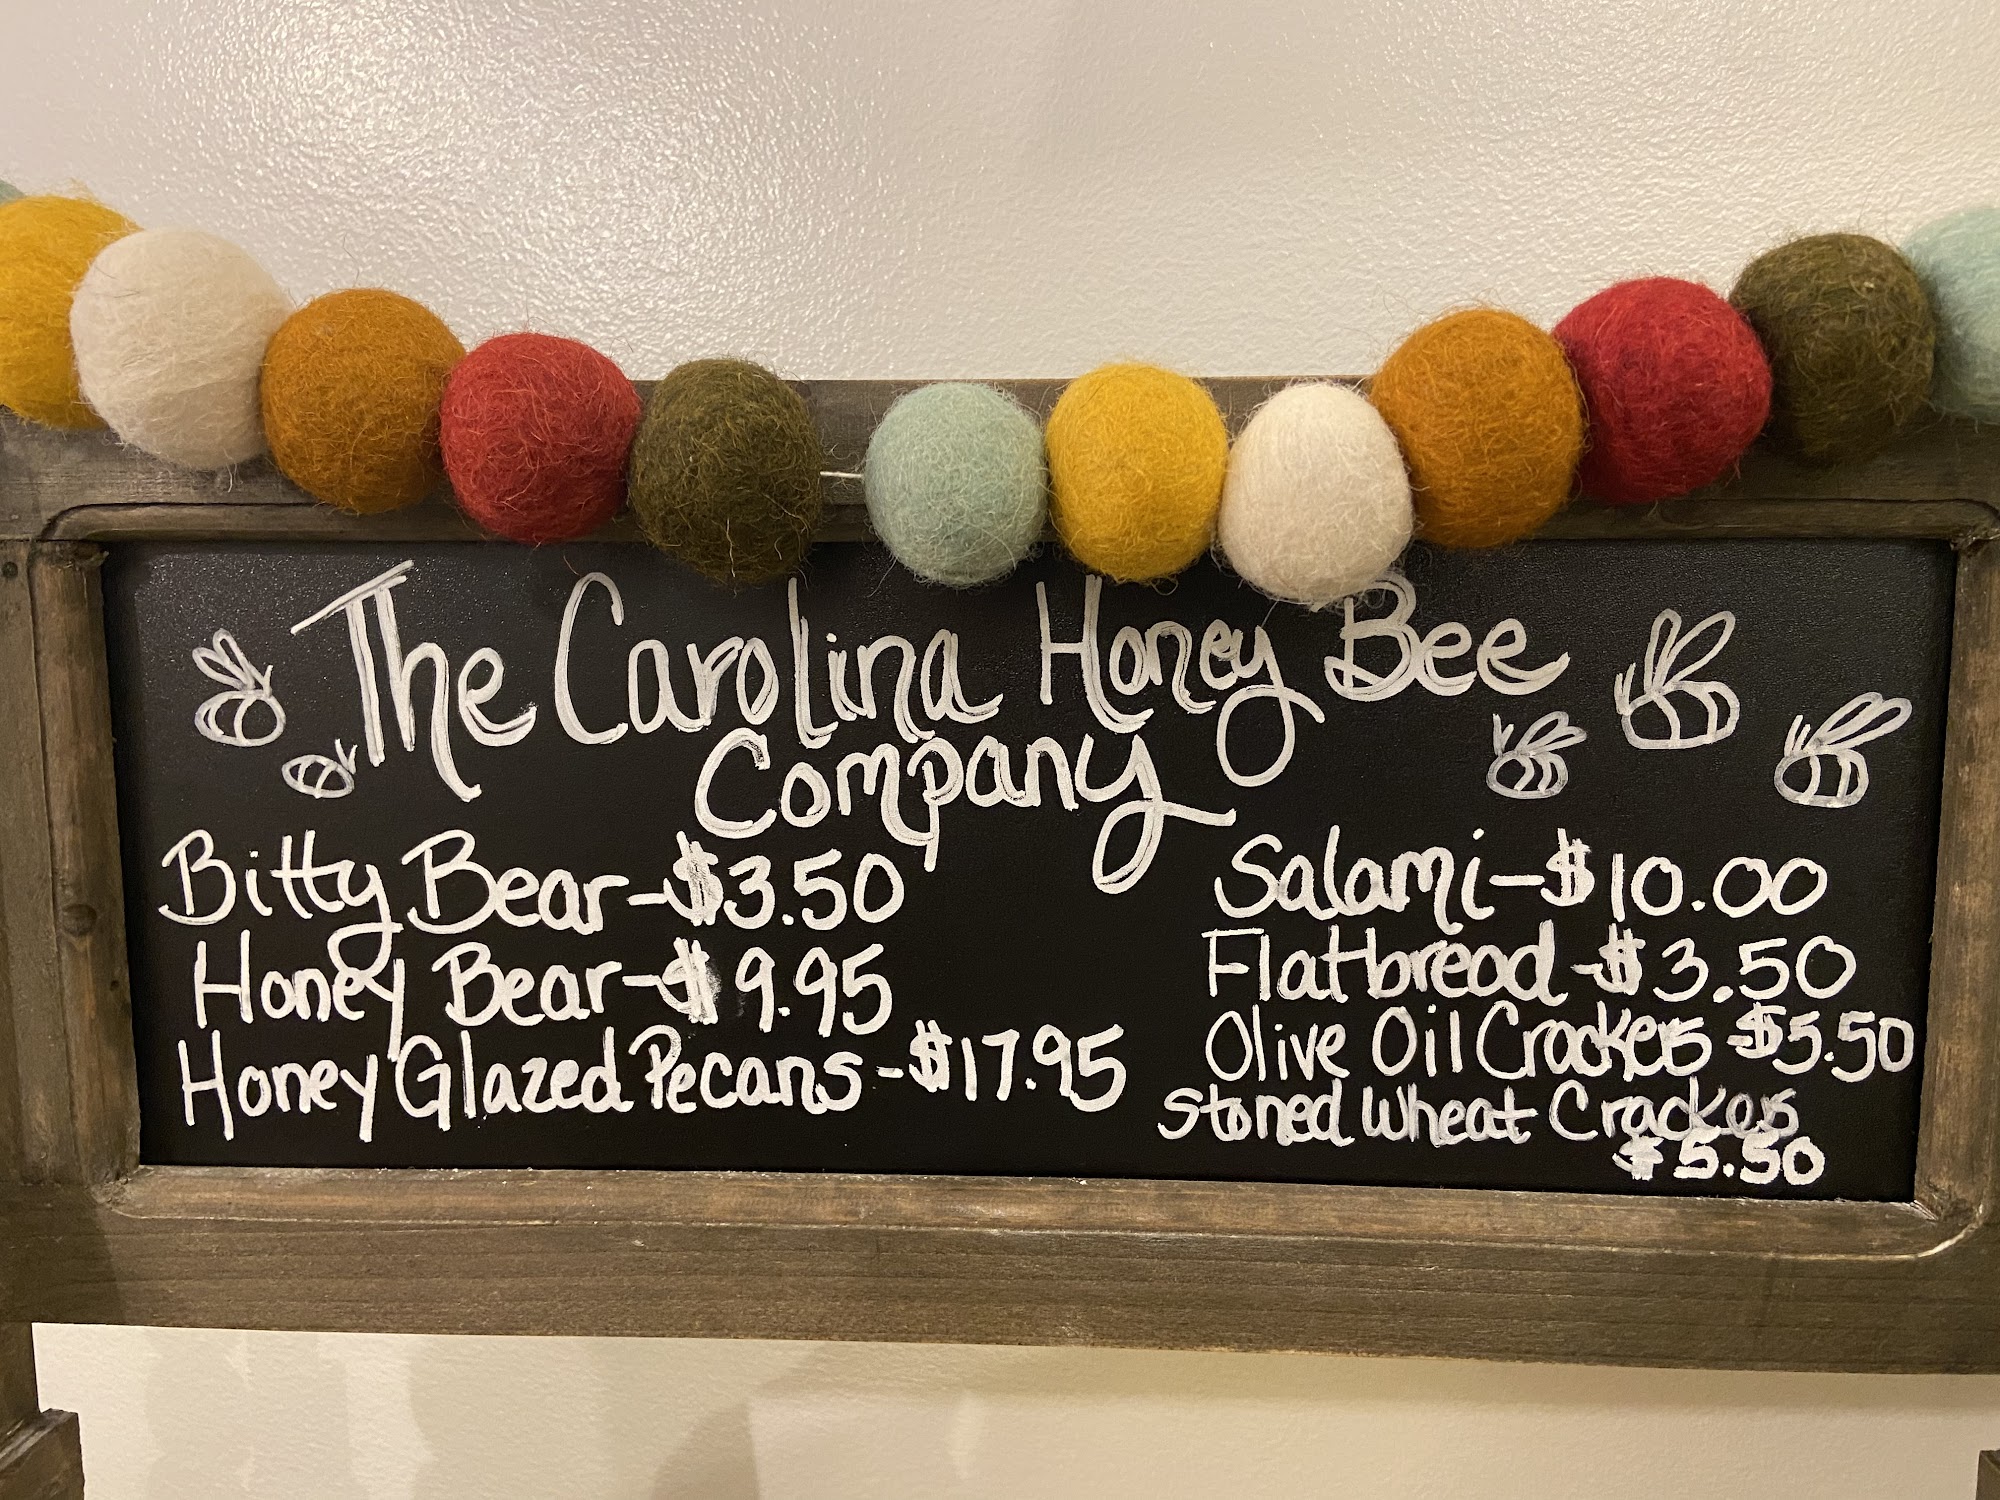 The Carolina Honey Bee
Company
Bitty Bear-$3.50
Honey Bear-$9.95
Honey Glazed Pecans-$17.95
Salami-$10.00
Flatbread-$3.50
Olive Oil Crackers-$5.50
Stoned Wheat Crackers
$5.50